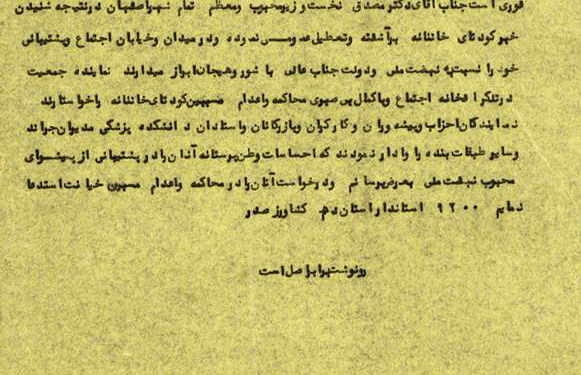 فوری است جناب آقای دکتر مصدق نخست وزیر محبوب و معظم تمام شهر اصفهان در نتیجه شنیدن
خبر کودتای خائنانه برآشفته و تعطیل عمومی نموده و در میدان و خیابان اجتماع و پشتیبانی
خود را نسبت به نهضت ملی و دولت جناب عالی با شور و هیجان ابراز میدارند نماینده جمعیت
در تلگرافخانه اجتماع و با کمال بی صبری محاکمه و اعدام مسببین کودتای خائنانه را خواستارند
نمایندگان احزاب و پیشه وران و کارگران و بازرگانان و استادان دانشکده پزشکی مدیران جراید
و سایر طبقات بنده را وادار نمودند که احساسات وطن پرستانه آنان را در پشتیبانی از پیشوای
محبوب نهضت ملی بعرض برسانم و درخواست آنان را در محاکمه و اعدام مسببین خیانت استدعا
نمایم ۹۲۰۰ استاندار استان دهم کشاورز صدر
رونوشت برابر اصل است